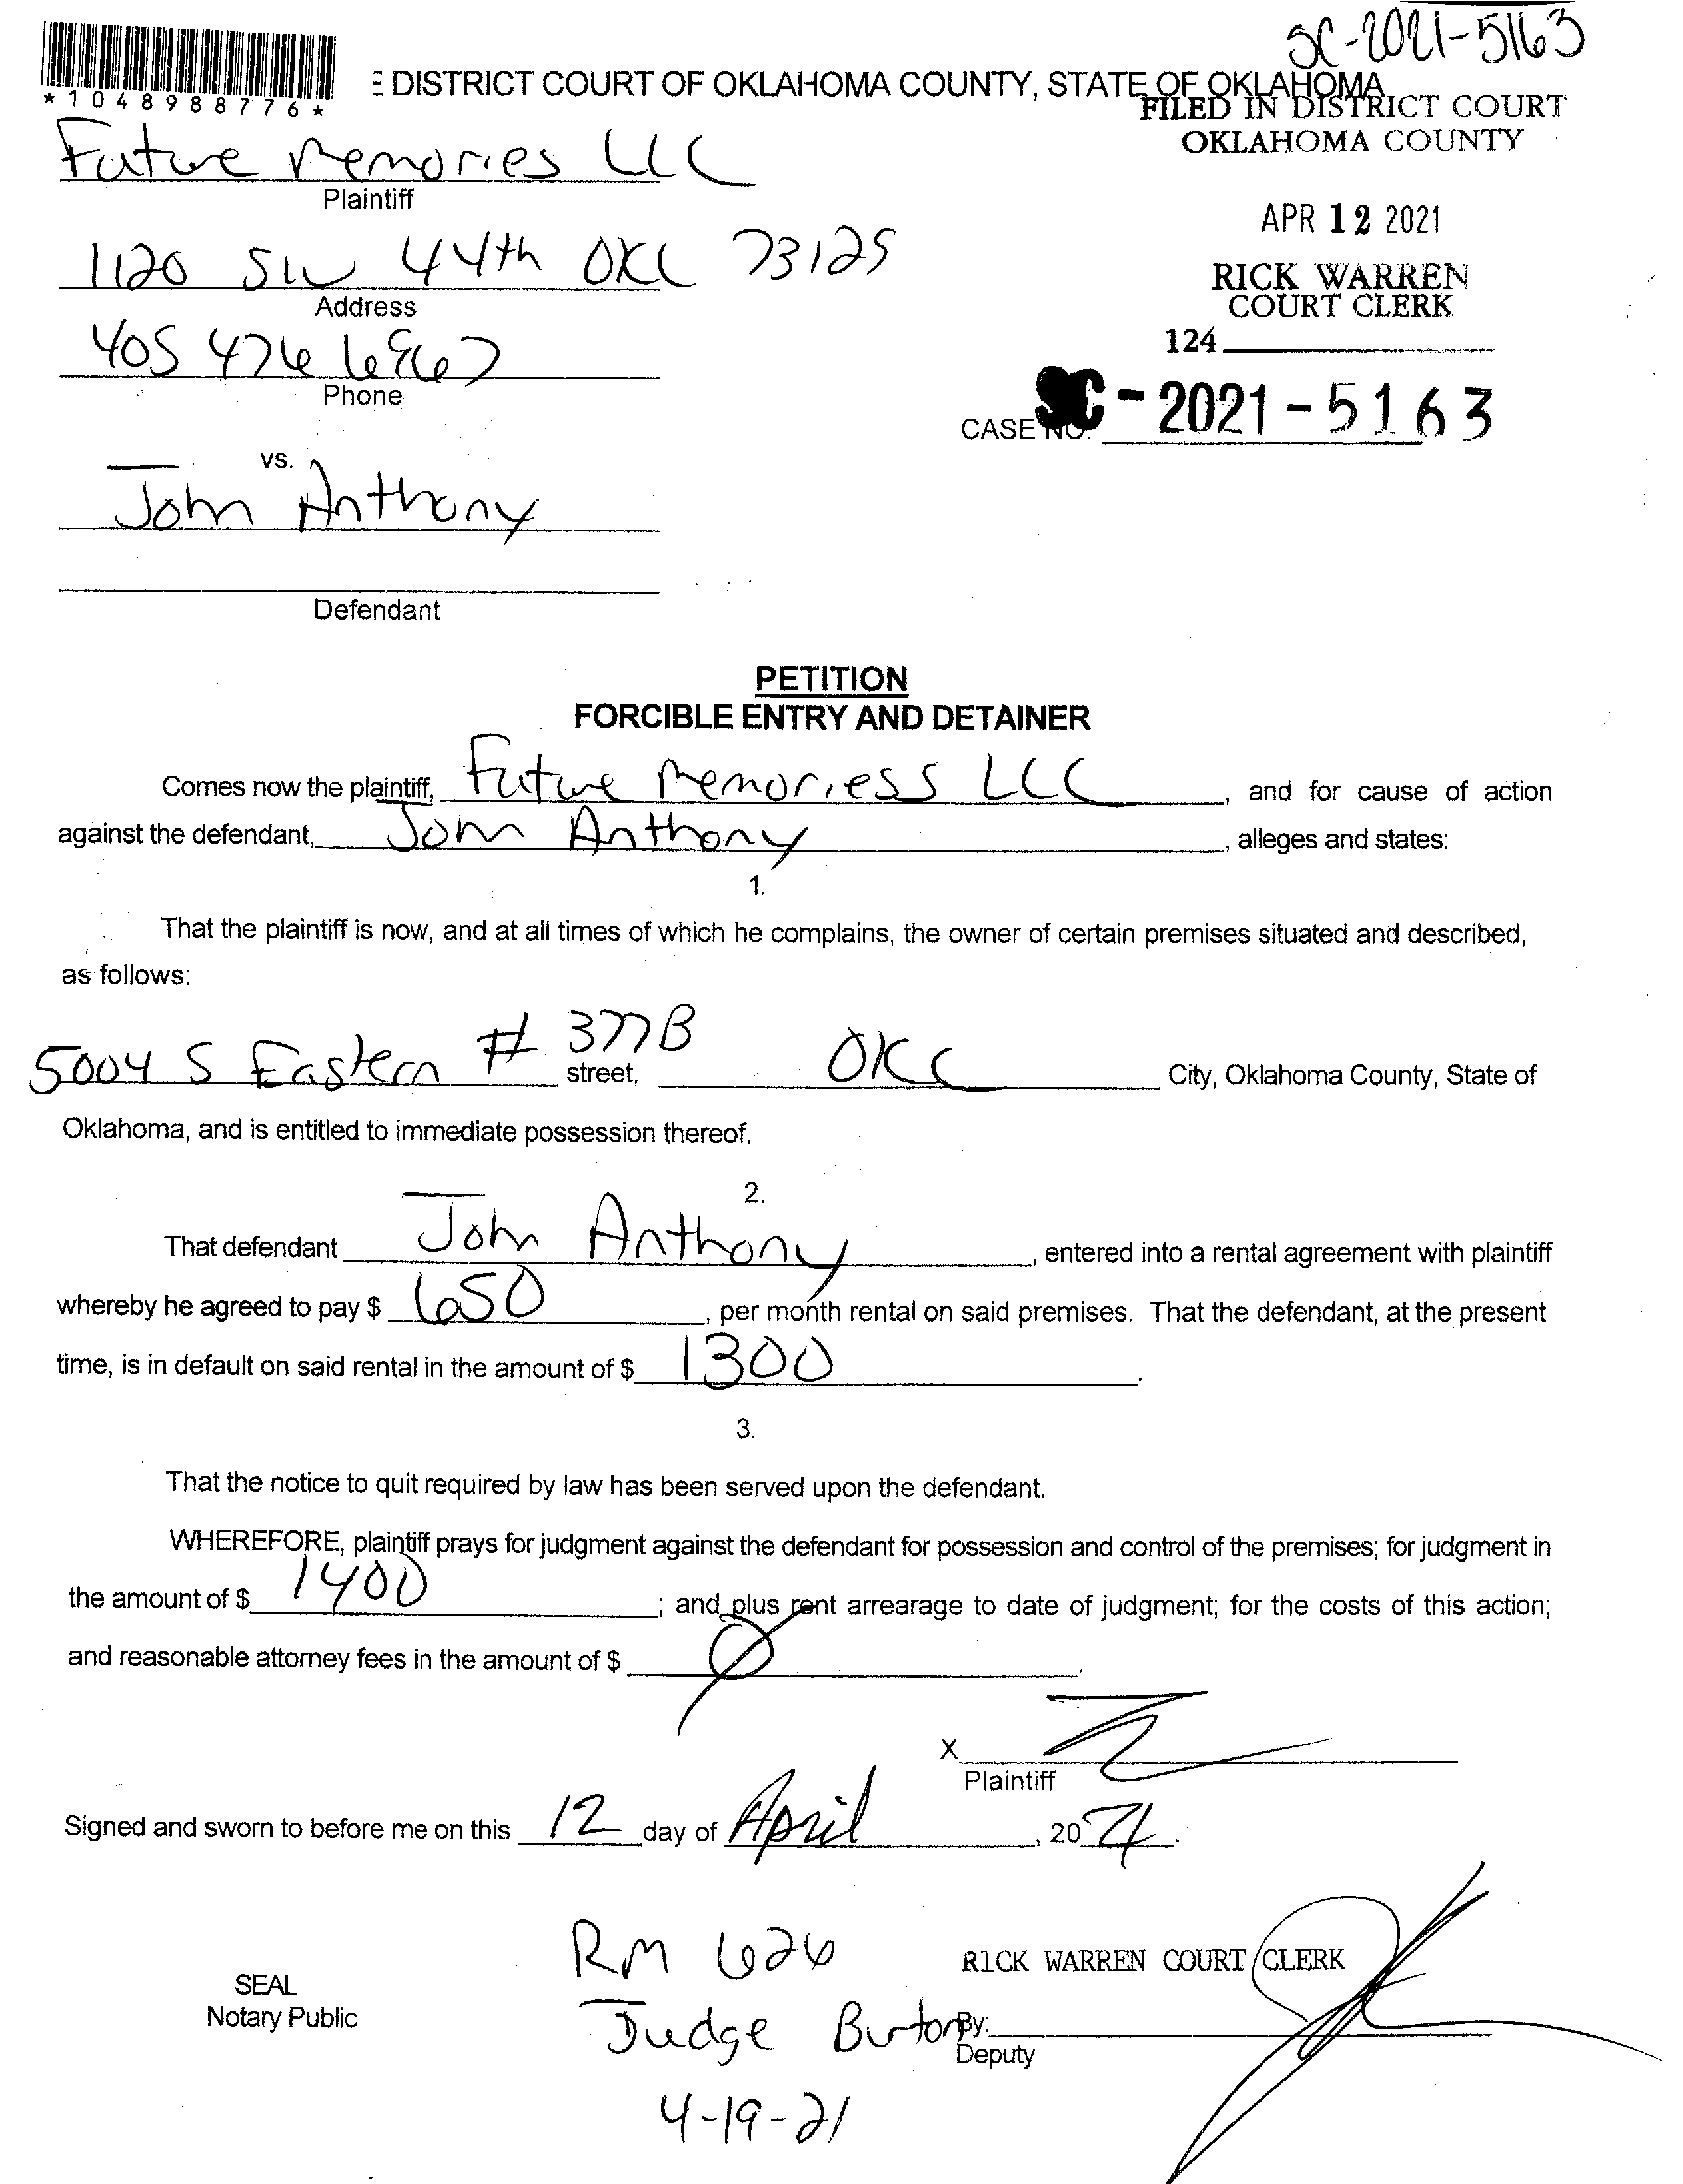 SC-2021-5163
*1048988776*
E DISTRICT COURT OF OKLAHOMA COUNTY, STATE OF OKLAHOMA
FILED IN DISTRICT COURT
OKLAHOMA COUNTY
Future Memories LLC
Plaintiff
APR 12 2021
1120 SW 44th OKC 73125
Address
RICK WARREN
COURT CLERK
405 476 6967
Phone
124
CASE NO. SC-2021-5163
vs.
John Anthony
Defendant
PETITION
FORCIBLE ENTRY AND DETAINER
Comes now the plaintiff, Future Memoriess LLC, and for cause of action
against the defendant, John Anthony, alleges and states:
1.
That the plaintiff is now, and at all times of which he complains, the owner of certain premises situated and described,
as follows:
5004 S Eastern # 377B street, OKC City, Oklahoma County, State of
Oklahoma, and is entitled to immediate possession thereof.
2.
That defendant John Anthony, entered into a rental agreement with plaintiff
whereby he agreed to pay $ 650, per month rental on said premises. That the defendant, at the present
time, is in default on said rental in the amount of $ 1300.
3.
That the notice to quit required by law has been served upon the defendant.
WHEREFORE, plaintiff prays for judgment against the defendant for possession and control of the premises; for judgment in
the amount of $ 1400; and plus rent arrearage to date of judgment; for the costs of this action;
and reasonable attorney fees in the amount of $ 0.
X
Plaintiff
Signed and sworn to before me on this 12 day of April, 2021.
RM 626
RICK WARREN COURT CLERK
SEAL
Notary Public
Judge Burton
By:
Deputy
4-19-21